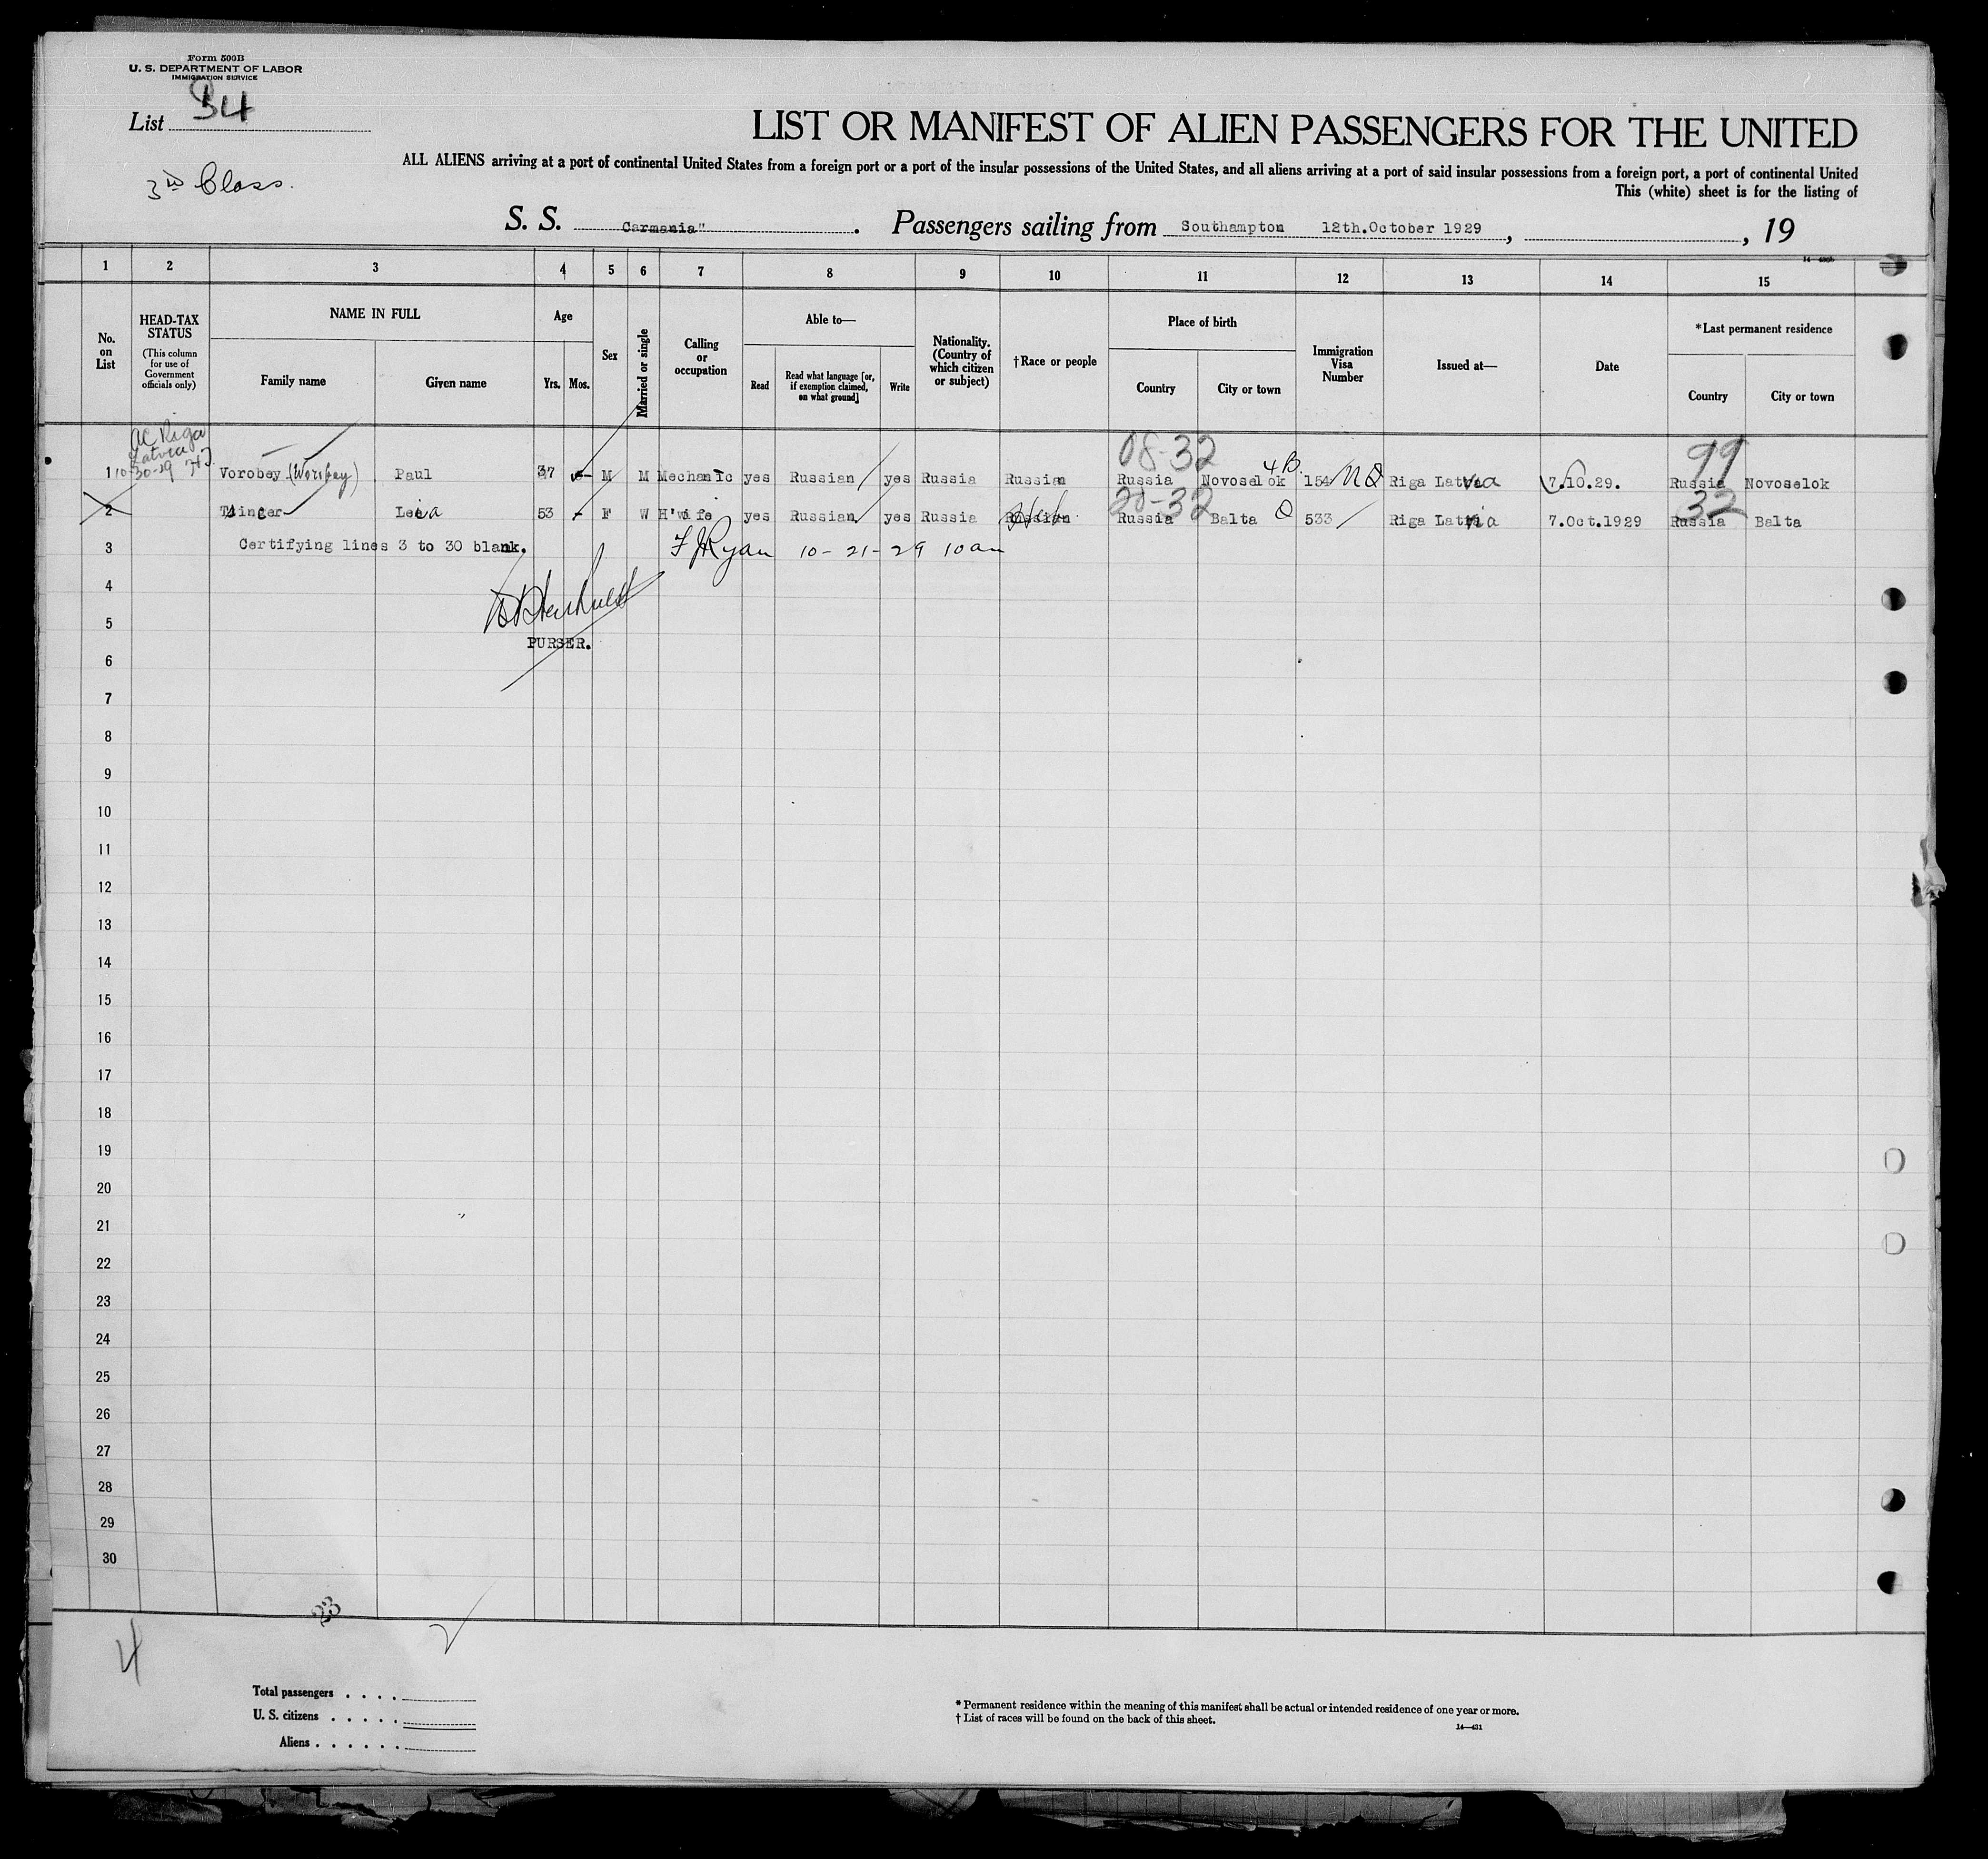 Form 500B
U. S. DEPARTMENT OF LABOR
IMMIGRATION SERVICE
List 34
3rd Class.
LIST OR MANIFEST OF ALIEN PASSENGERS FOR THE UNITED
ALL ALIENS arriving at a port of continental United States from a foreign port or a port of the insular possessions of the United States, and all aliens arriving at a port of said insular possessions from a foreign port, a port of continental United
This (white) sheet is for the listing of
S. S. Carmania" . Passengers sailing from Southampton 12th.October 1929 , , 19
1 2 3 4 5 6 7 8 9 10 11 12 13 14 15
No. on List
HEAD-TAX STATUS
(This column for use of Government officials only)
NAME IN FULL
Family name Given name
Age
Yrs. Mos.
Sex
Married or single
Calling or occupation
Able to—
Read
Read what language [or, if exemption claimed, on what ground]
Write
Nationality. (Country of which citizen or subject)
†Race or people
Place of birth
Country City or town
Immigration Visa Number
Issued at—
Date
*Last permanent residence
Country City or town
AC Riga
Latvia
10-30-29
08-32 99
1 Vorobey (Worobey) Paul 37 M M Mechanic yes Russian yes Russia Russian Russia Novoselok 4 B. 154 NQ Riga Latvia 7.10.29. Russia Novoselok
20-32 32
2 53 F W H'wife yes Russian yes Russia Russian Russia Balta Q 533 Riga Latvia 7.Oct.1929 Russia Balta
3 Certifying lines 3 to 30 blank. F J Ryan 10-21-29 10am
4
5
PURSER.
6
7
8
9
10
11
12
13
14
15
16
17
18
19
20
21
22
23
24
25
26
27
28
29
30
23
4
Total passengers . . . .
U. S. citizens . . . . .
Aliens . . . . . .
* Permanent residence within the meaning of this manifest shall be actual or intended residence of one year or more.
† List of races will be found on the back of this sheet.
14—431